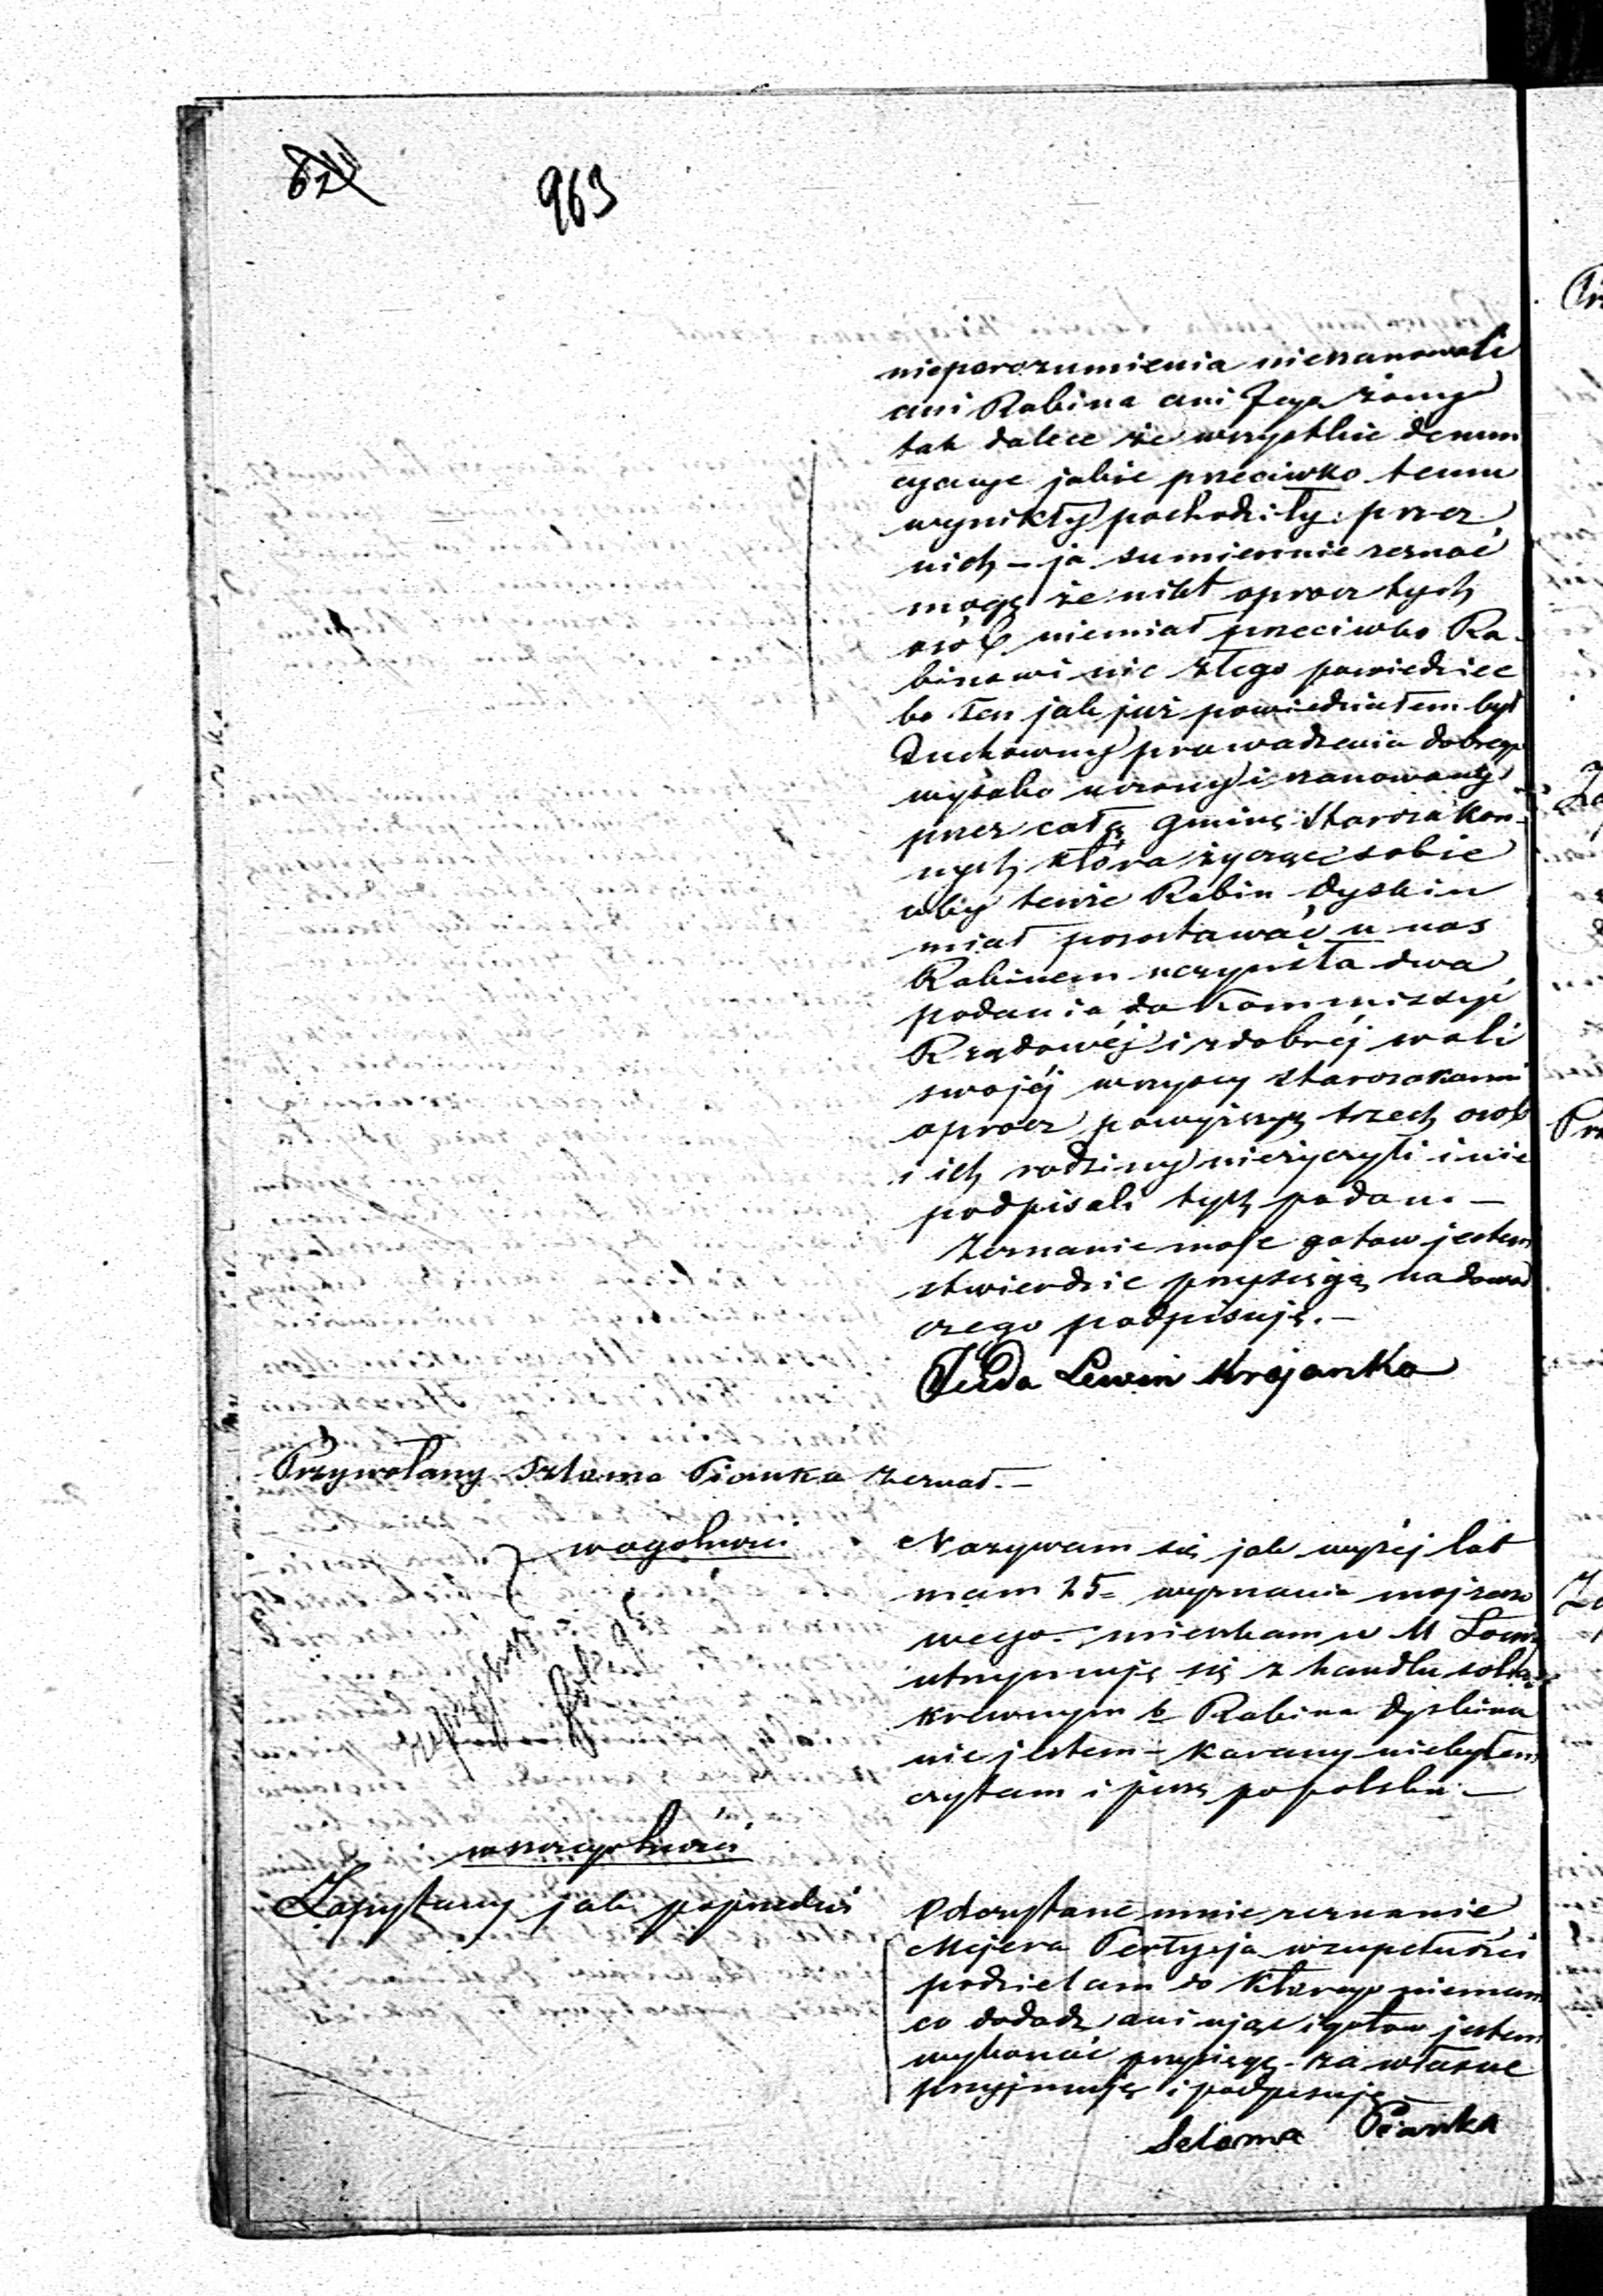 963
nieporozumienia nieszanowali
ani Rabina ani Jego żony
tak dalece że wszystkie denun
cyacye jakie przeciwko temu
wynikły pochodziły przez
nich – ja sumiennie zeznać
mogę że nikt oprocz tych
osób niemiał przeciwko Ra-
binowi nic złego powiedziec
bo ten jak już powiedziałem był
Duchowny prowadzenia dobrego
wysoko uczony i szanowany
przez całą gminę Starozakon-
nych, która życząc sobie
aby tenże Rabin Dyskin
miał pozostawać u nas
Rabinem uczyniła dwa
podania do Kommissyi
Rządowéj i z dobréj woli
swojéj wszyscy starozakonni
oprocz powyższych trzech osob
i ich rodziny nieżyczyli i nie
podpisali tych podan. –
Zeznanie moje gotow jestem
stwierdzic przysięgą na dowod
czego podpisuję. –
Juda Lewin Krajanka
Przywołany Szlama Pianka zeznał. –
w ogolnosci
Nazywam się jak wyżéj lat
mam 25 = wyznania mojżeszo
wego – mieszkam w M Łomży
utrzymuję się z handlu solą
krewnym b Rabina Dyskina
nie jestem – karany niebyłem
czytam i piszę po polsku –
w szczegolnosci
Zapytany jak poprzedni
Odczytane mnie zeznanie
Mejera Perłysja w zupełności
podzielam do ktorego niemam
co dodadz ani ująć i gotow jestem
wykonać przysięgę – za własne
przyjmuję i podpisuję
Selama Pianka